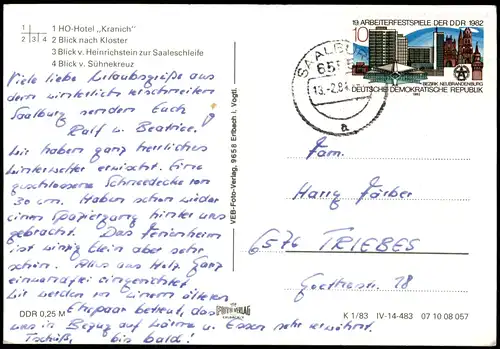 1 HO-Hotel „Kranich"
2 Blick nach Kloster
3 Blick v. Heinrichstein zur Saaleschleife
4 Blick v. Sühnekreuz
1
2 3 4
Viele liebe Urlaubsgrüße aus
dem winterlich verschneiten
Saalburg senden Euch
Ralf u. Beatrice!
Wir haben ganz herrliches
Winterwetter erwischt. Eine
geschlossene Schneedecke von
30 cm. Haben schon wieder
einen Spaziergang hinter uns
gebracht. Das Ferienheim
ist winzig klein aber sehr
schön. Alles aus Holz. Ganz
einwandfrei eingerichtet
Wir werden von einem älteren
Ehepaar betreut, das
uns in Bezug auf Wärme u. Essen sehr verwöhnt.
Tschüß, bis bald!
DDR 0,25 M
VEB-Foto-Verlag, 9658 Erlbach i. Vogtl.
19. ARBEITERFESTSPIELE DER DDR 1982
10
BEZIRK NEUBRANDENBURG
DEUTSCHE DEMOKRATISCHE REPUBLIK
SAALBURG
13.-2.84
a
Fam.
Hans Färber
6576 TRIEBES
Goethestr. 18
K 1/83 IV-14-483 07 10 08 057